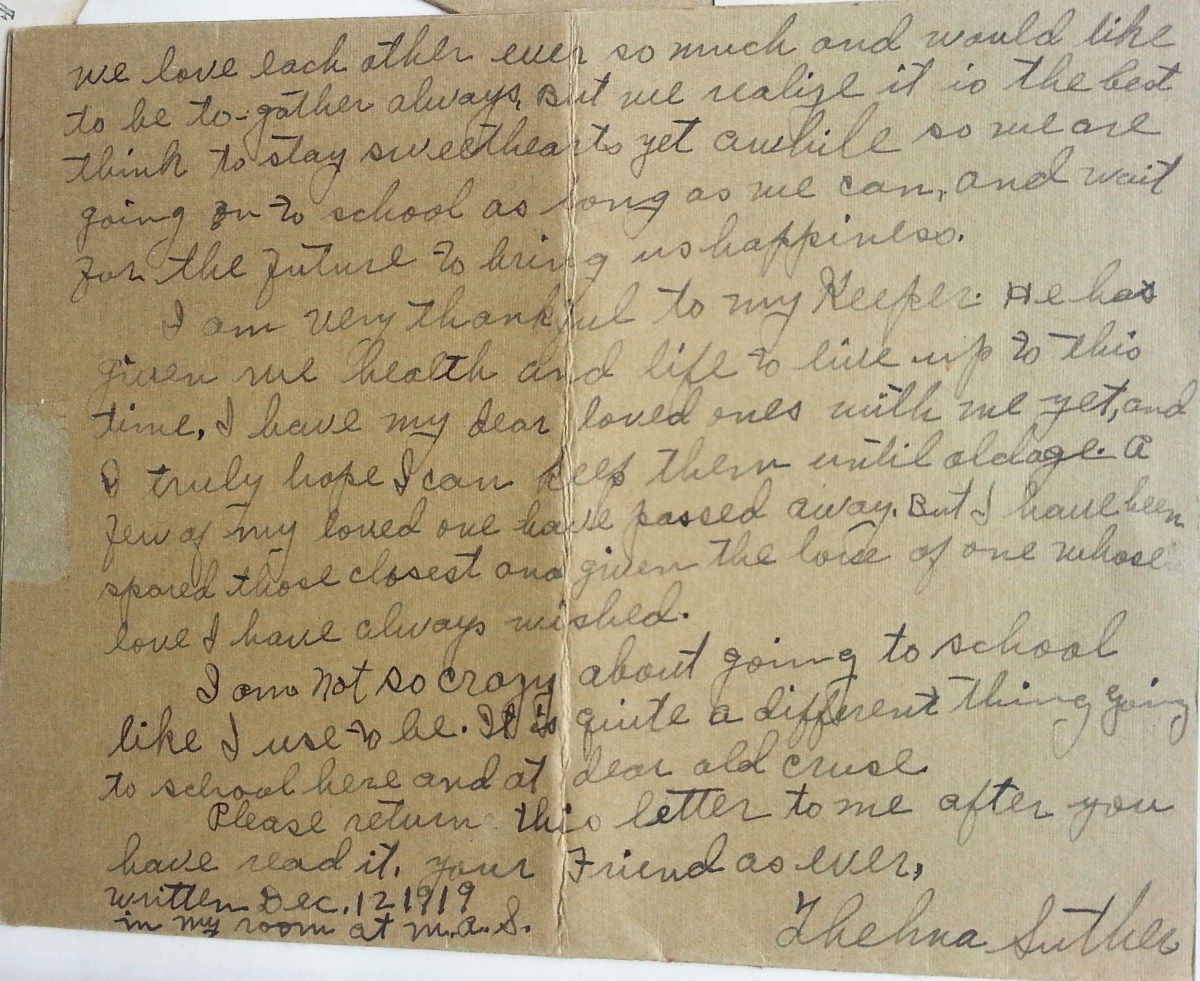 we love each other ever so much and would like
to be to-gather always, But we realize it is the best
think to stay sweethearts yet awhile so we are
going on to school as long as we can, and wait
for the future to bring us happiness.
I am very thankful to my Keeper. He has
given me health and life to live up to this
time, I have my dear loved ones with me yet, and
I truly hope I can keep them until oldage. A
few of my loved one have passed away. But I have been
spared those closest and given the love of one whose
love I have always wished.
I am not so crazy about going to school
like I use to be. It is quite a different thing going
to school here and at dear old cruse
Please return this letter to me after you
have read it. your Friend as ever,
written Dec. 12 1919
in my room at m.a.S.
Thelma Suther